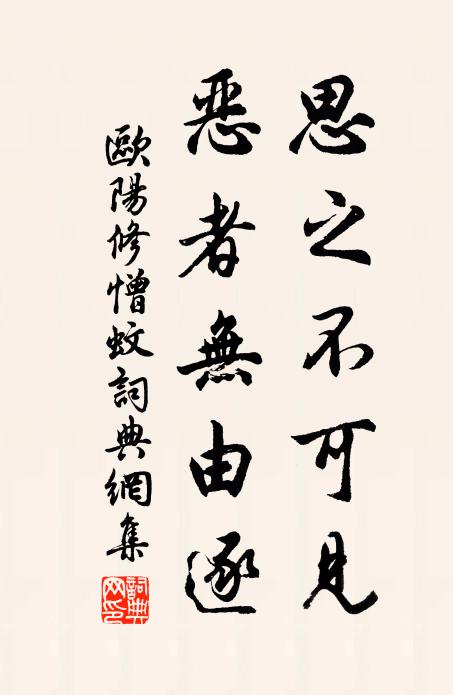 思之不可見
惡者無由逐
歐陽修憎蚊詞典網集
詞典网印